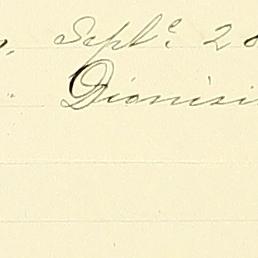 Septe. 20
Dionisi